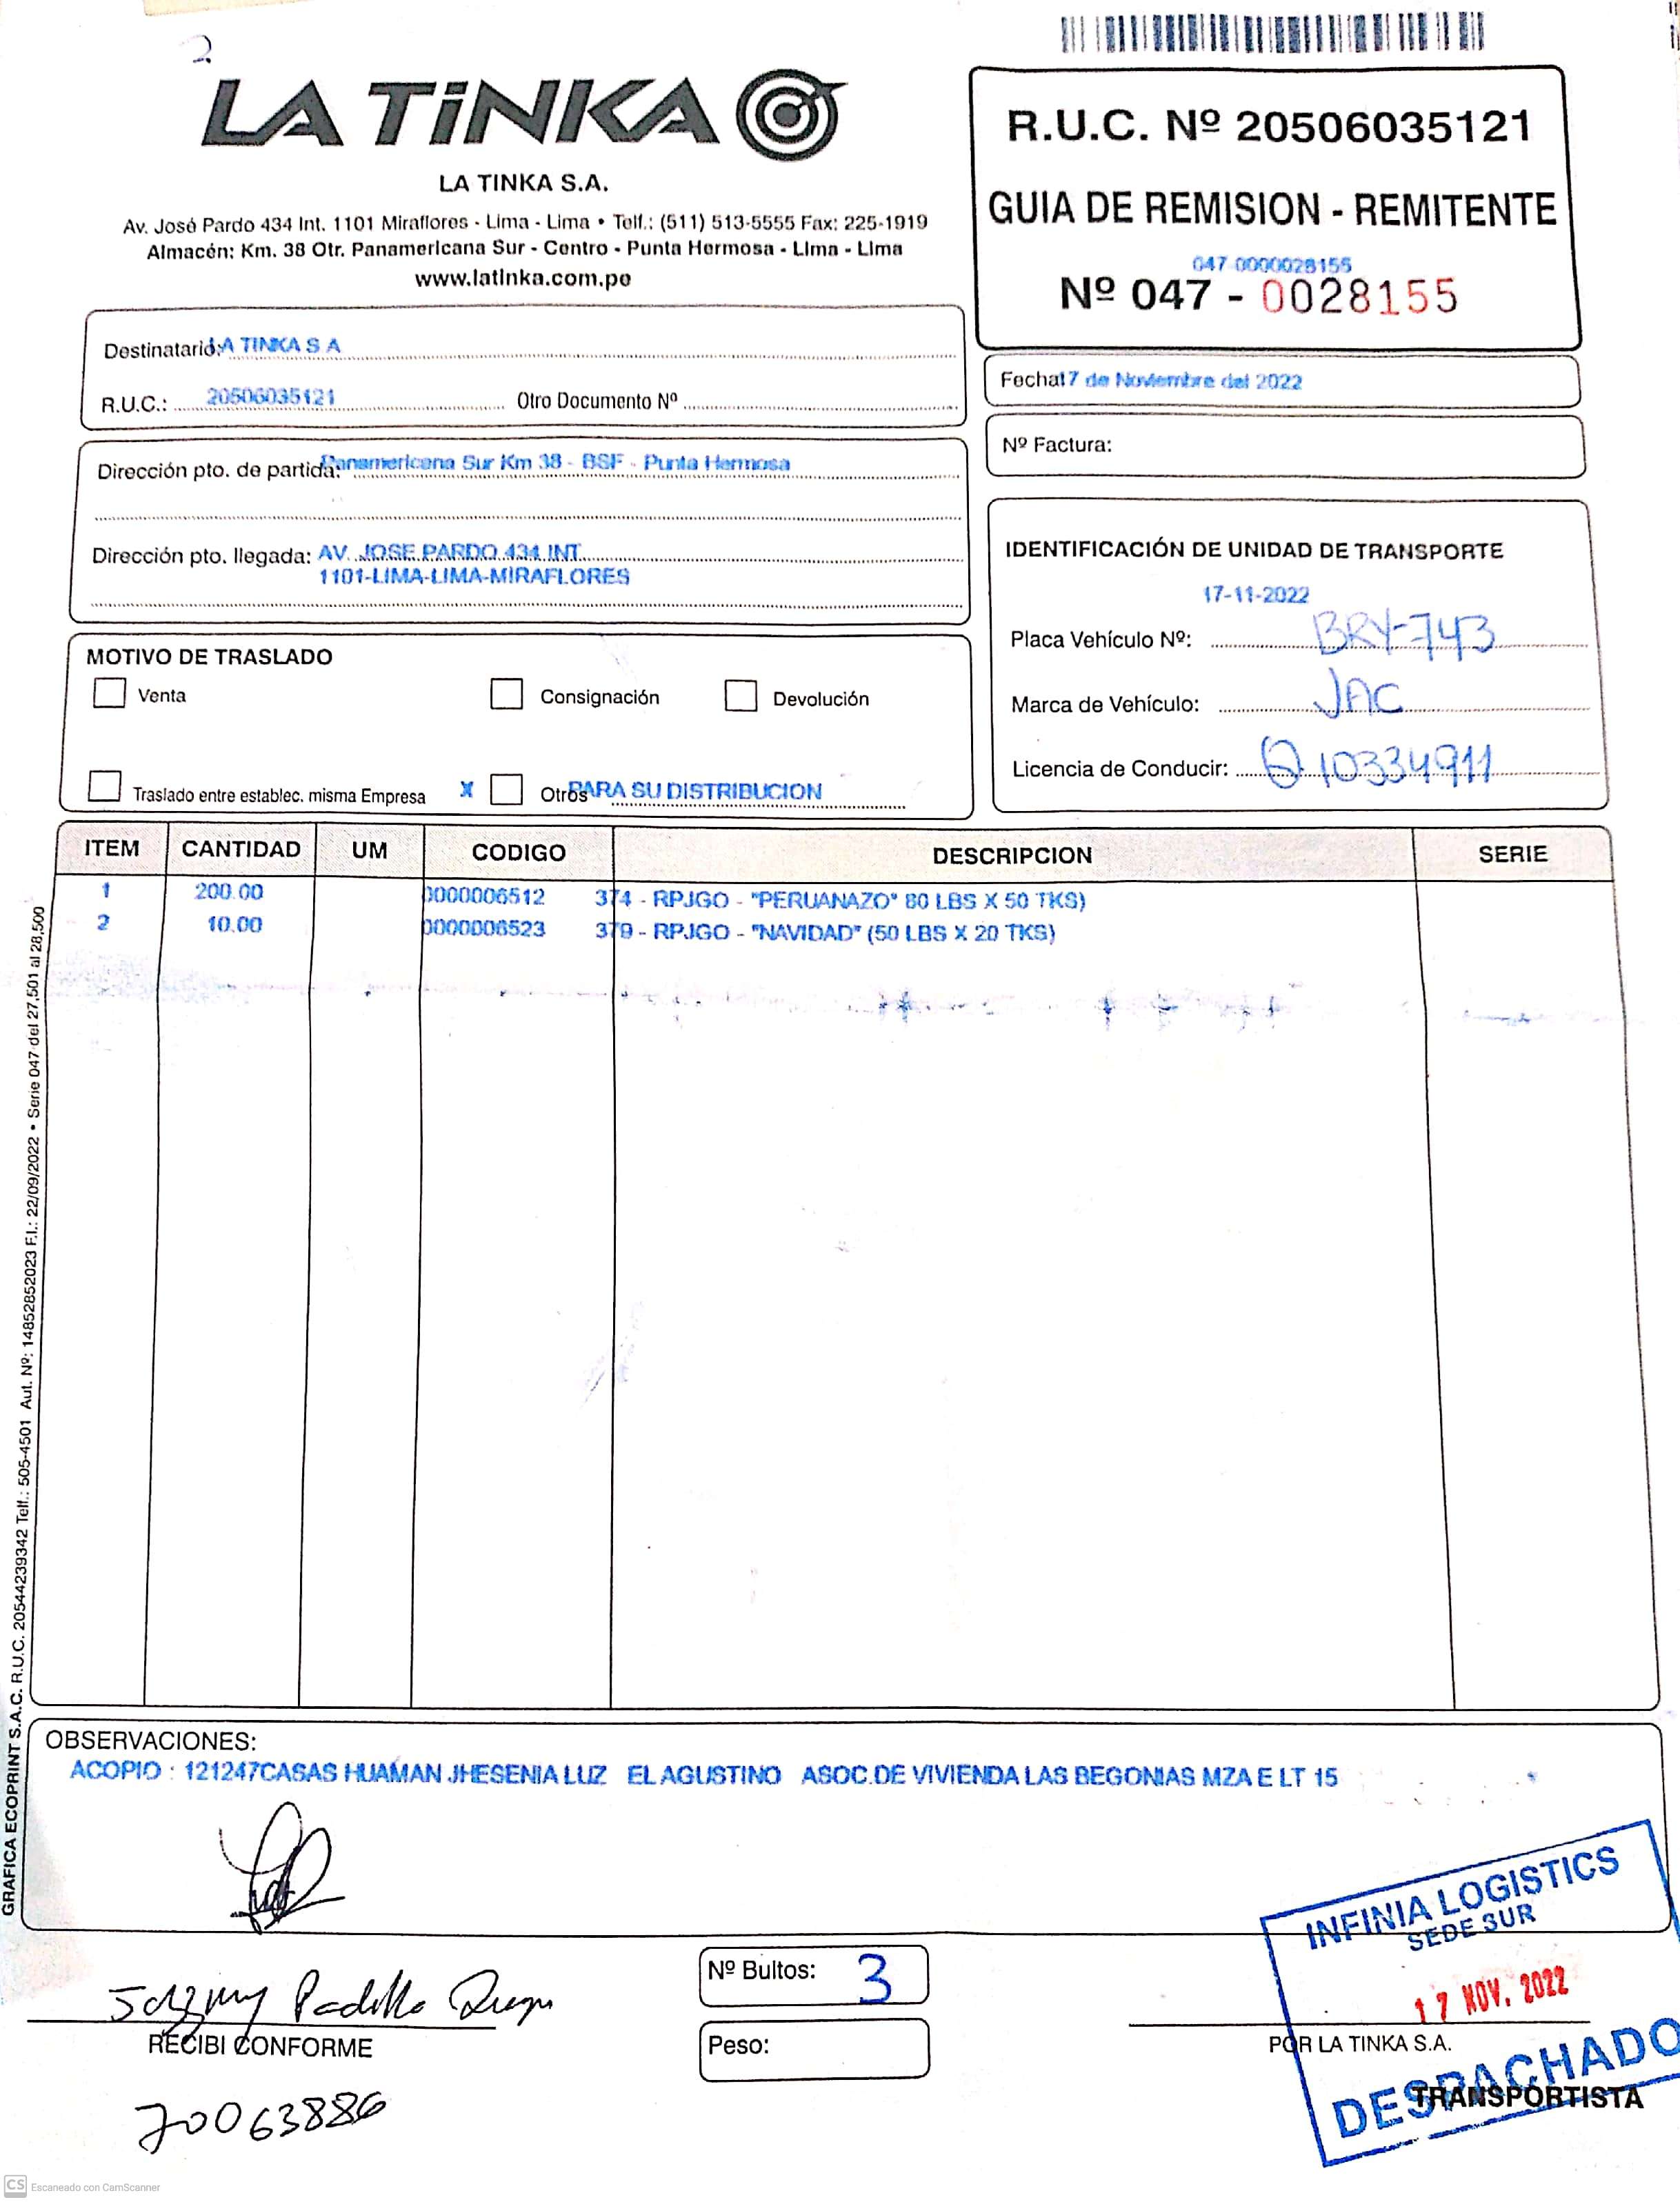 2
LA TiNKA
LA TINKA S.A.
Av. José Pardo 434 Int. 1101 Miraflores - Lima - Lima • Telf.: (511) 513-5555 Fax: 225-1919
Almacén: Km. 38 Otr. Panamericana Sur - Centro - Punta Hermosa - Lima - Lima
www.latinka.com.pe
R.U.C. Nº 20506035121
GUIA DE REMISION - REMITENTE
047 0000028155
Nº 047 - 0028155
Destinatario: LA TINKA S A
R.U.C.: 20506035121 Otro Documento Nº
Fecha: 17 de Noviembre del 2022
Nº Factura:
Dirección pto. de partida: Panamericana Sur Km 38 - BSF - Punta Hermosa
Dirección pto. llegada: AV. JOSE PARDO 434 INT.
1101-LIMA-LIMA-MIRAFLORES
IDENTIFICACIÓN DE UNIDAD DE TRANSPORTE
17-11-2022
Placa Vehículo Nº: BRY-743
Marca de Vehículo: JAC
Licencia de Conducir: Q 10334911
MOTIVO DE TRASLADO
Venta Consignación Devolución
Traslado entre establec. misma Empresa X Otros PARA SU DISTRIBUCION
ITEM CANTIDAD UM CODIGO DESCRIPCION SERIE
1 200.00 0000006512 374 - RPJGO - "PERUANAZO" 80 LBS X 50 TKS)
2 10.00 0000006523 379 - RPJGO - "NAVIDAD" (50 LBS X 20 TKS)
GRAFICA ECOPRINT S.A.C. R.U.C. 20544239342 Telf.: 505-4501 Aut. Nº: 14852852023 F.I.: 22/09/2022 • Serie 047 del 27,501 al 28,500
OBSERVACIONES:
ACOPIO : 121247CASAS HUAMAN JHESENIA LUZ EL AGUSTINO ASOC.DE VIVIENDA LAS BEGONIAS MZA E LT 15
INFINIA LOGISTICS
SEDE SUR
17 NOV. 2022
DESPACHADO
Padilla
RECIBI CONFORME
70063886
Nº Bultos: 3
Peso:
POR LA TINKA S.A.
TRANSPORTISTA
CS Escaneado con CamScanner